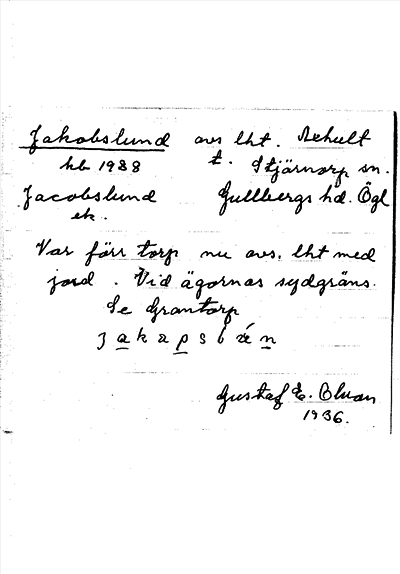 Jakobslund avs lht. Rehult
hb 1988 t. Stjärnorp sn.
Jacobslund Gullbergs hd. Ögl
ek.
Var förr torp nu avs. lht med
jord. Vid ägornas sydgräns.
Se Grantorp
Gustaf E.
1936.